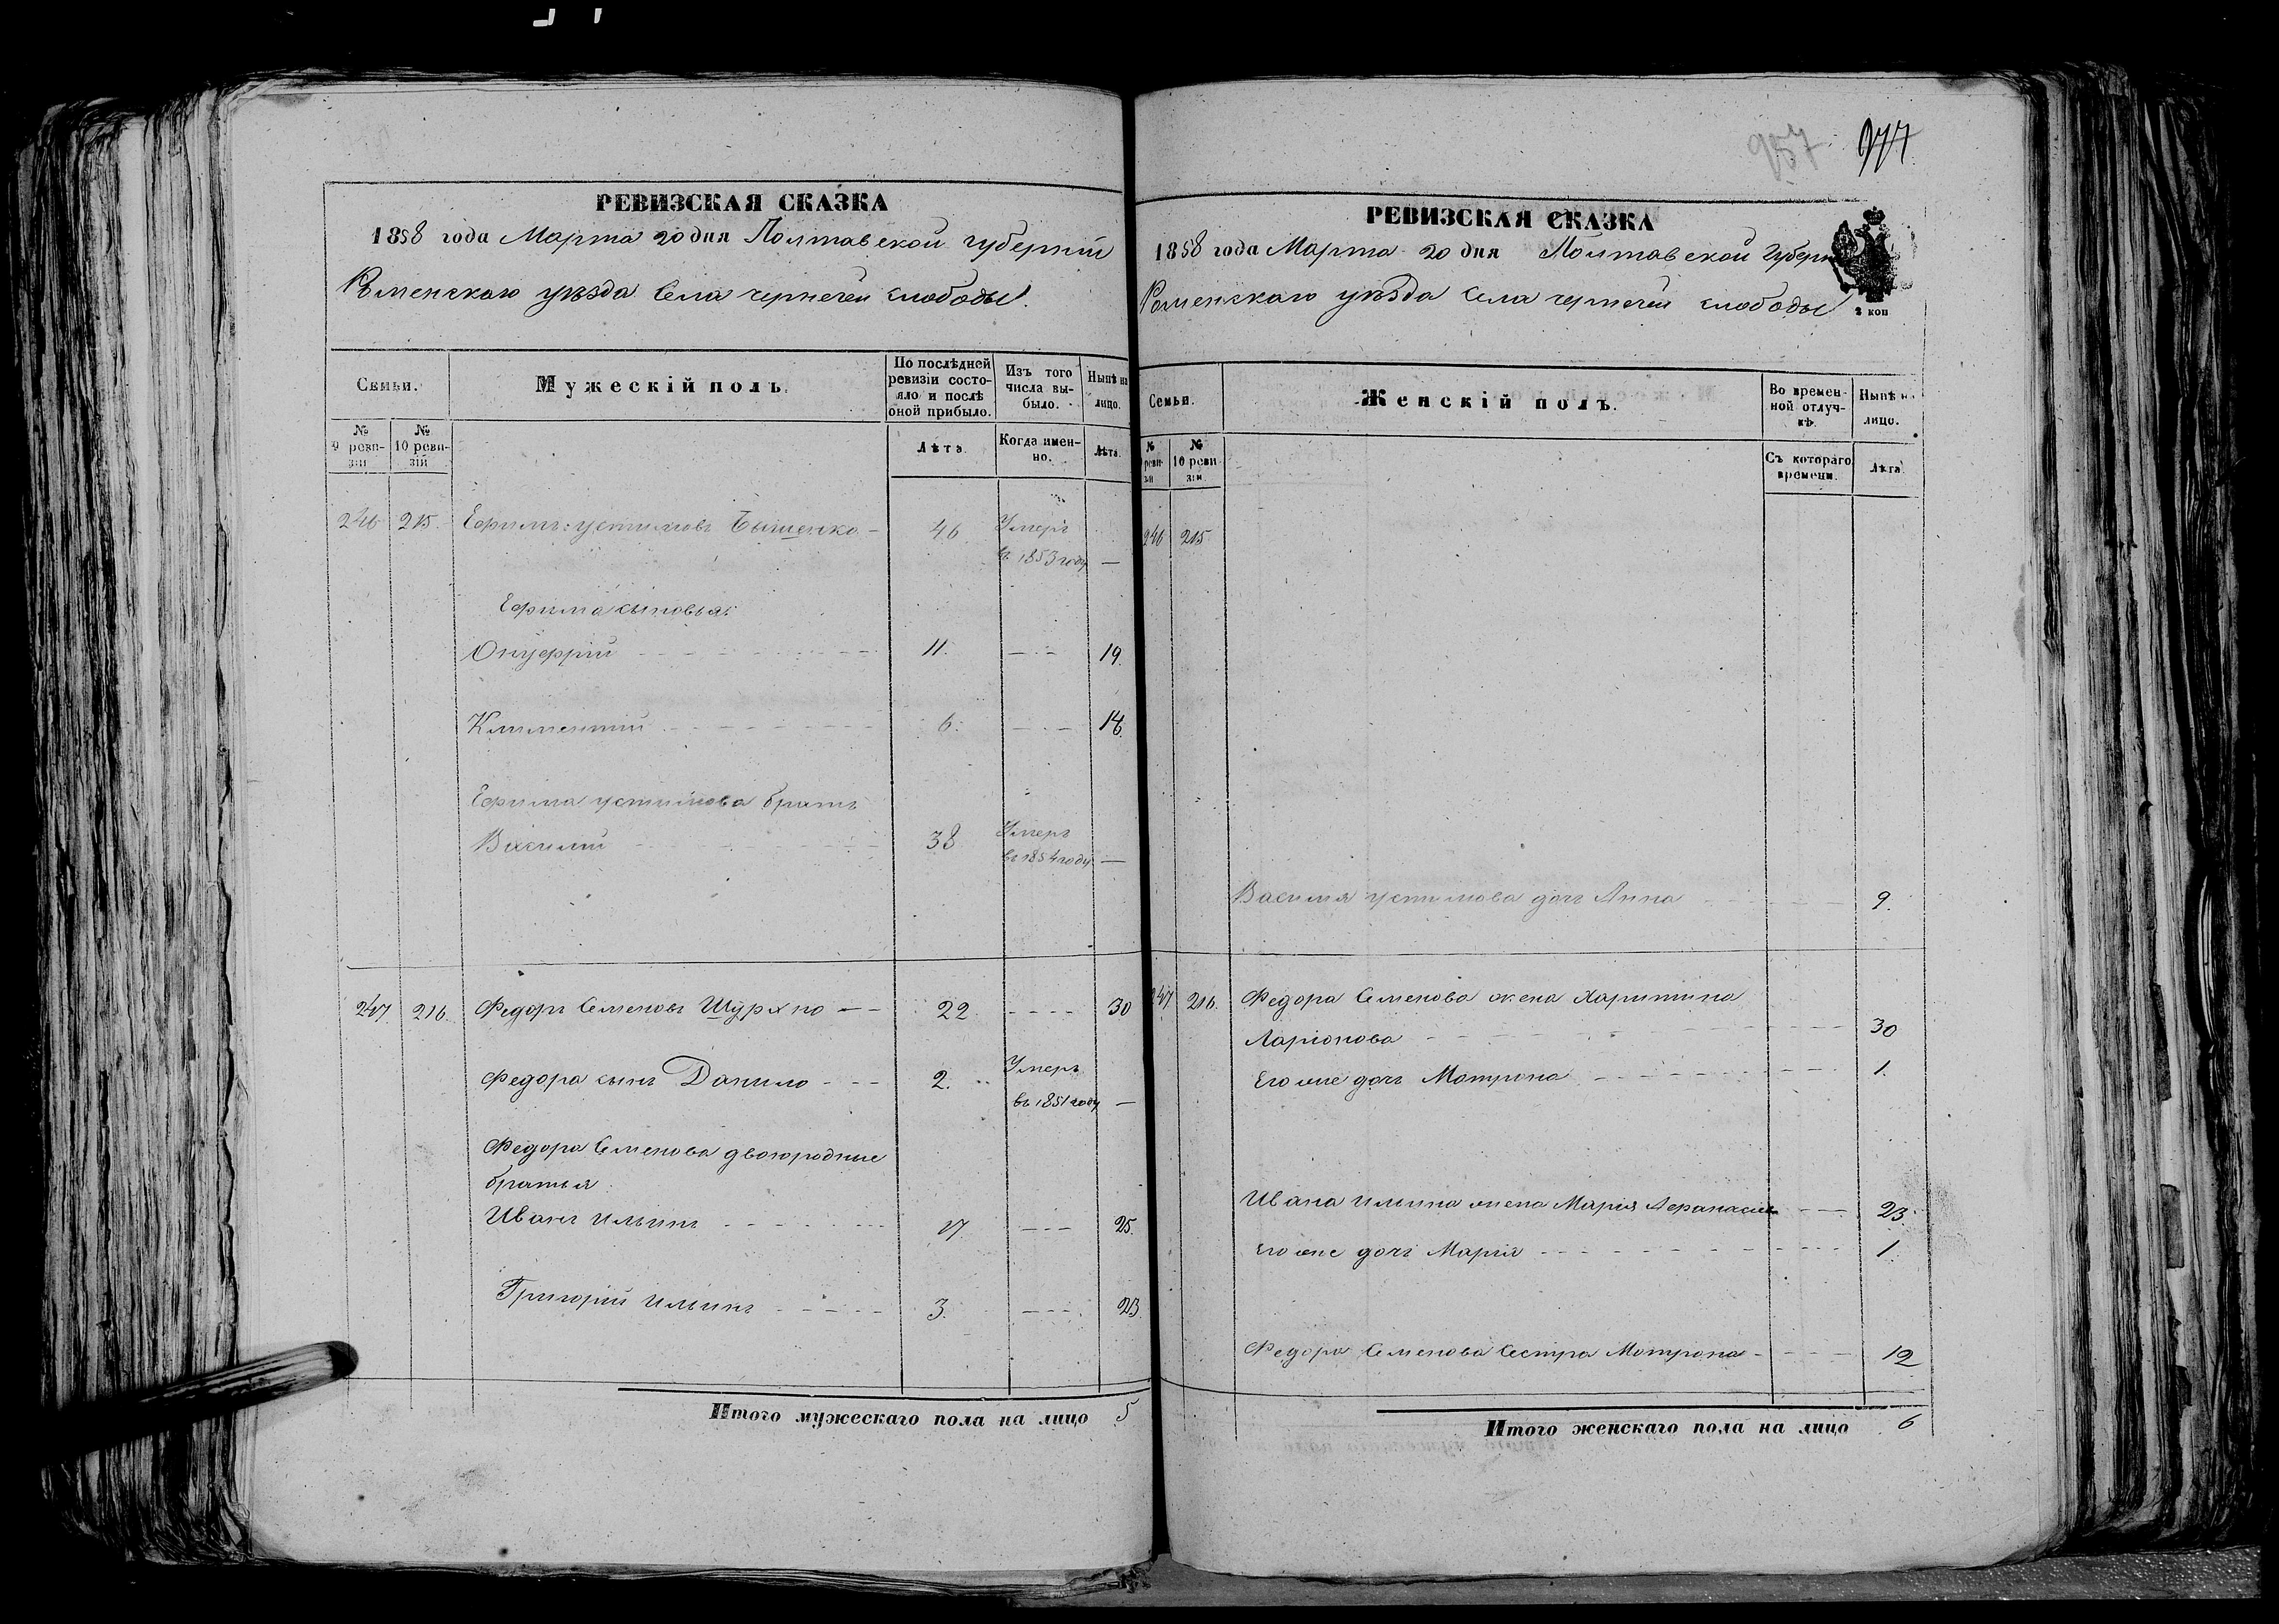 957 977
РЕВИЗСКАЯ СКАЗКА
1858 года Марта 20 дня Полтавской губерніи
Роменскаго уѣзда Села чернечей слободы.
Семьи.
Мужескій полъ.
По послѣдней ревизіи состояло и послѣ оной прибыло.
Изъ того числа выбыло.
Нынѣ на лицо.
№ 9 ревизіи
№ 10 ревизій
Лѣта.
Когда именно.
Лѣта.
246 215 Ефимъ устимовъ 46 Умеръ
въ 1853 году —
Ефима сыновья:
Онуфрій 11. — 19.
Климентій 6. — 14.
Ефима устимова братъ
Василій 38 Умеръ
въ 1854 году —
247. 216. Федоръ Семеновъ 22 — 30
Федора сынъ Данило 2. Умеръ
въ 1851 году —
Федора Семенова двоюродные
братья
Иванъ Ильинъ 17 — 25.
Григорій Ильинъ 3. — 23.
Итого мужескаго пола на лицо 5
РЕВИЗСКАЯ СКАЗКА
1858 года Марта 20 дня Полтавской Губерн
Роменскаго уѣзда Села чернечей слободы
2 коп
Семьи.
Женскій полъ.
Во временной отлучкѣ.
Нынѣ на лицо.
№ ревизіи
№ 10 ревизіи
Съ котораго времени.
Лѣта.
246 215
Василія устимова дочь Анна 9.
247 216. Федора Семенова жена Харитина
Ларіонова 30
Его же дочь Мотрона 1.
Ивана Ильина жена Марія 23.
Его же дочь Марія 1.
Федора Семенова Сестра Мотрона 12
Итого женскаго пола на лицо 6